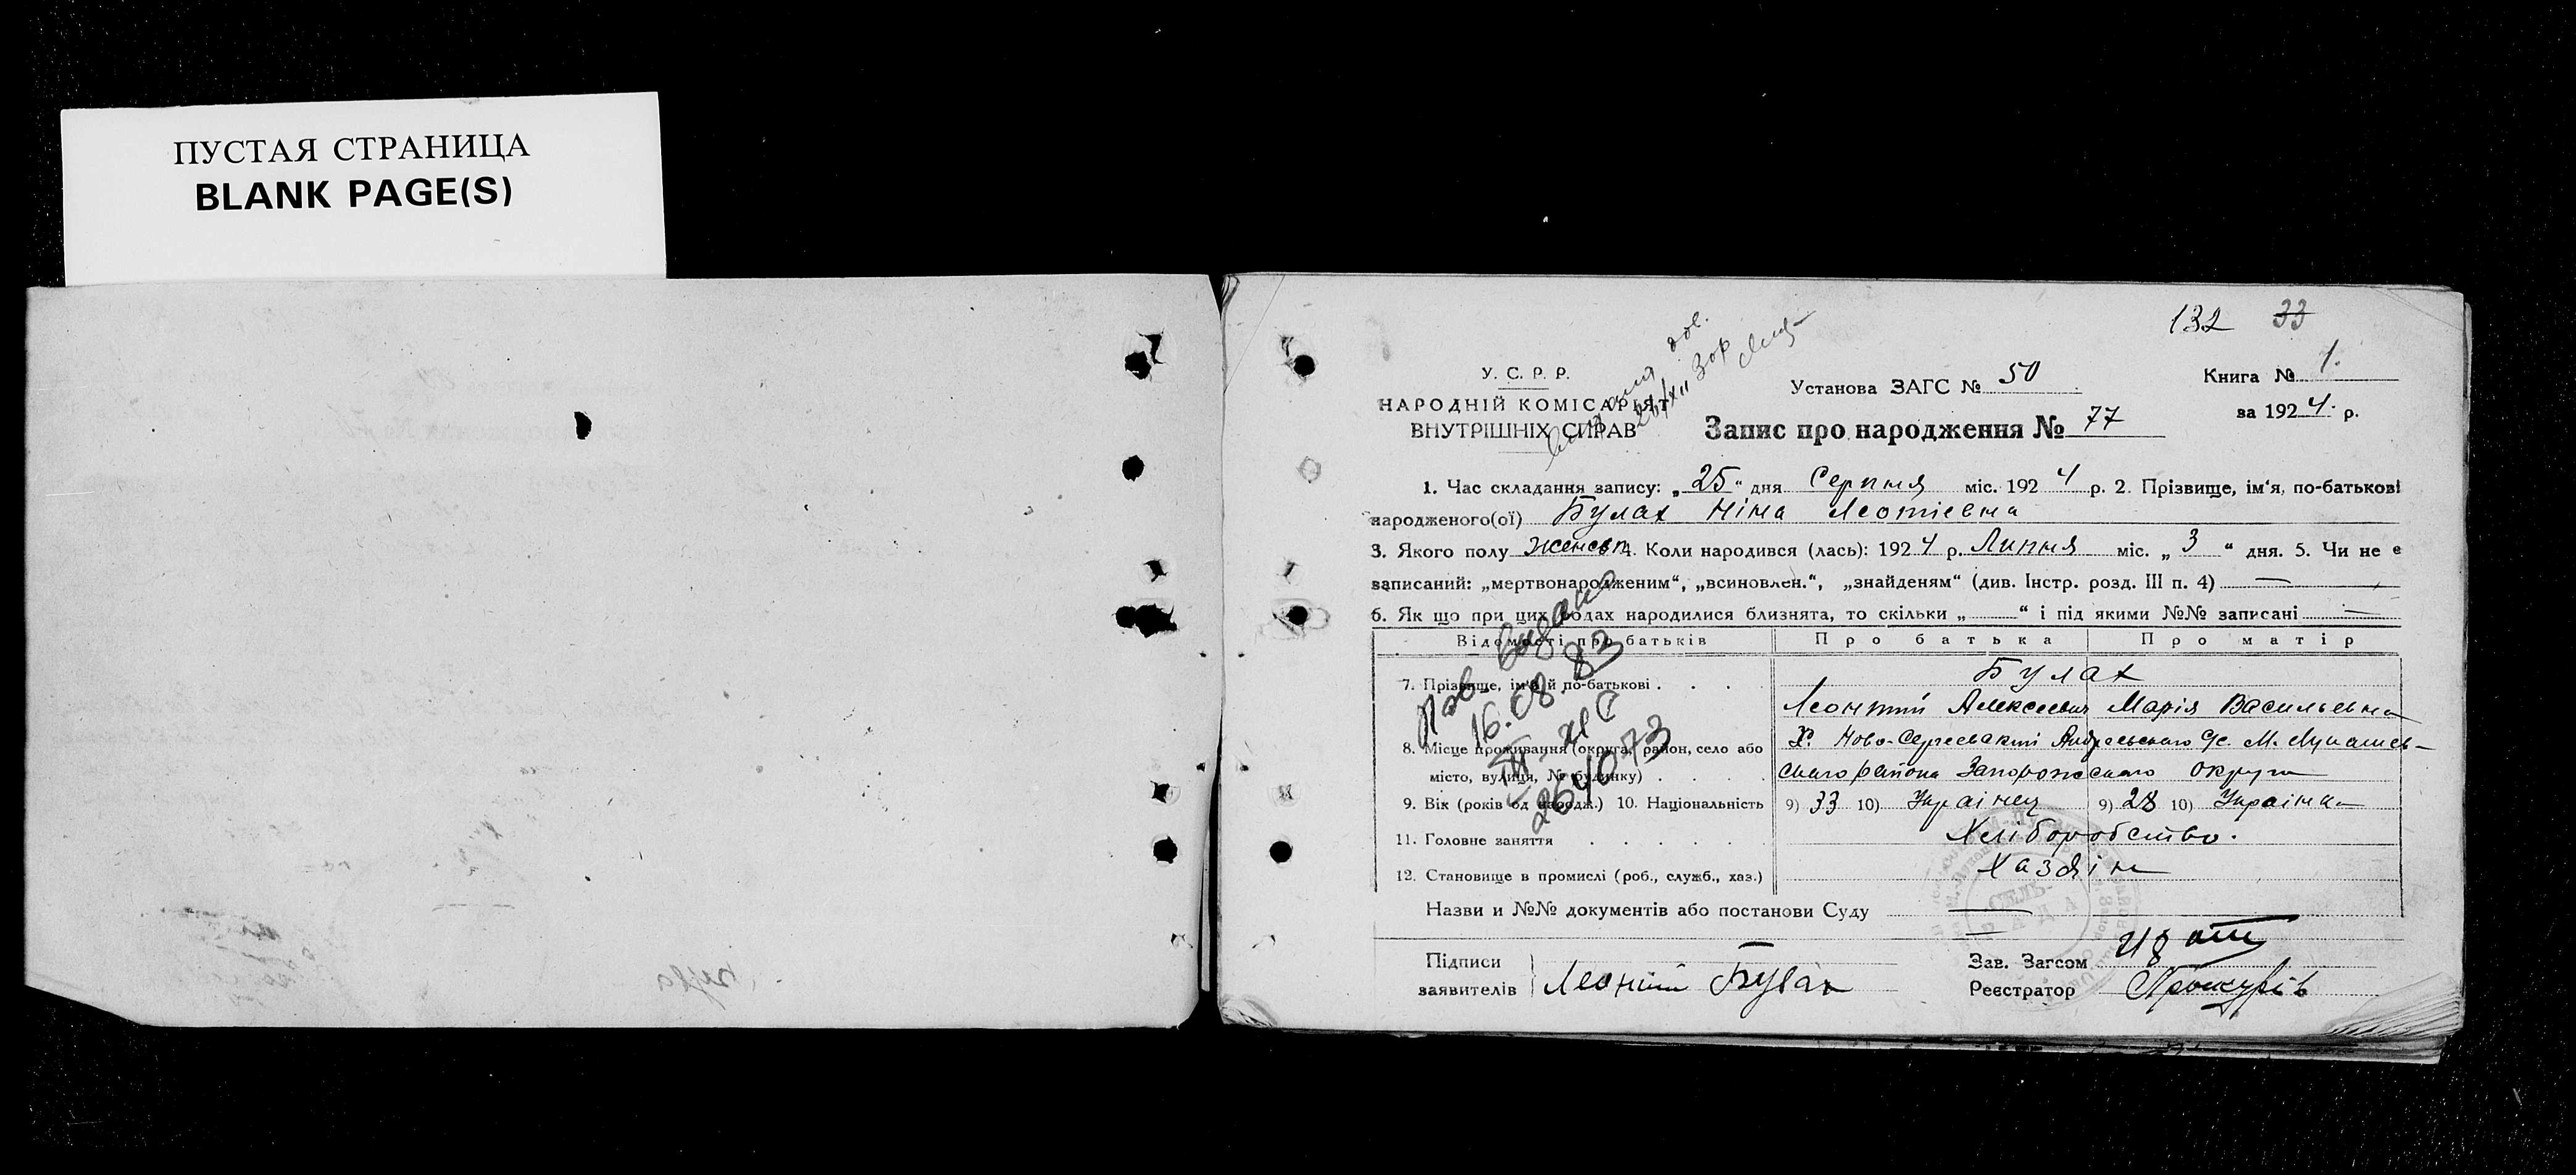 ПУСТАЯ СТРАНИЦА
BLANK PAGE(S)
132 33
У. С. Р. Р.
НАРОДНІЙ КОМІСАРІЯТ
ВНУТРІШНІХ СПРАВ
Установа ЗАГС № 50
Книга № 1.
за 1924 р.
Запис про народження № 77
1. Час складання запису: „25“ дня Серпня міс. 1924 р. 2. Прізвище, ім‘я, по-батькові
народженого(ої) Булах Ніна Леонтіевна
3. Якого полу женск. 4. Коли народився (лась): 1924 р. Липня міс. „3“ дня. 5. Чи не є
записаний: „мертвонародженим“, „всиновлен.“, „знайденям“ (див. Інстр. розд. III п. 4) —
6. Як що при цих родах народилися близнята, то скільки „—“ і під якими №№ записані —
Відомості про батьків Про батька Про матір
7. Прізвище, ім‘я й по-батькові . . . Булах
Леонтий Алексеевич Марія Васильевна
8. Місце проживання (округа, район, село або Х. Ново-Сергеевский М. Лукашев-
місто, вулиця, № будинку) . . . . ского района Запорожского Округи
9. Вік (років од народж.) 10. Національність 9) 33 10) Украінец 9) 28 10) Украінка
11. Головне заняття . . . . . Хліборобство.
12. Становище в промислі (роб., служб., хаз.) Хазяін
Назви и №№ документів або постанови Суду —
Підписи
заявителів Леонтий Булах
Зав. Загсом
Реєстратор
Пов. выдано
16.08.83
264073
СЕЛЬ-
РАДА